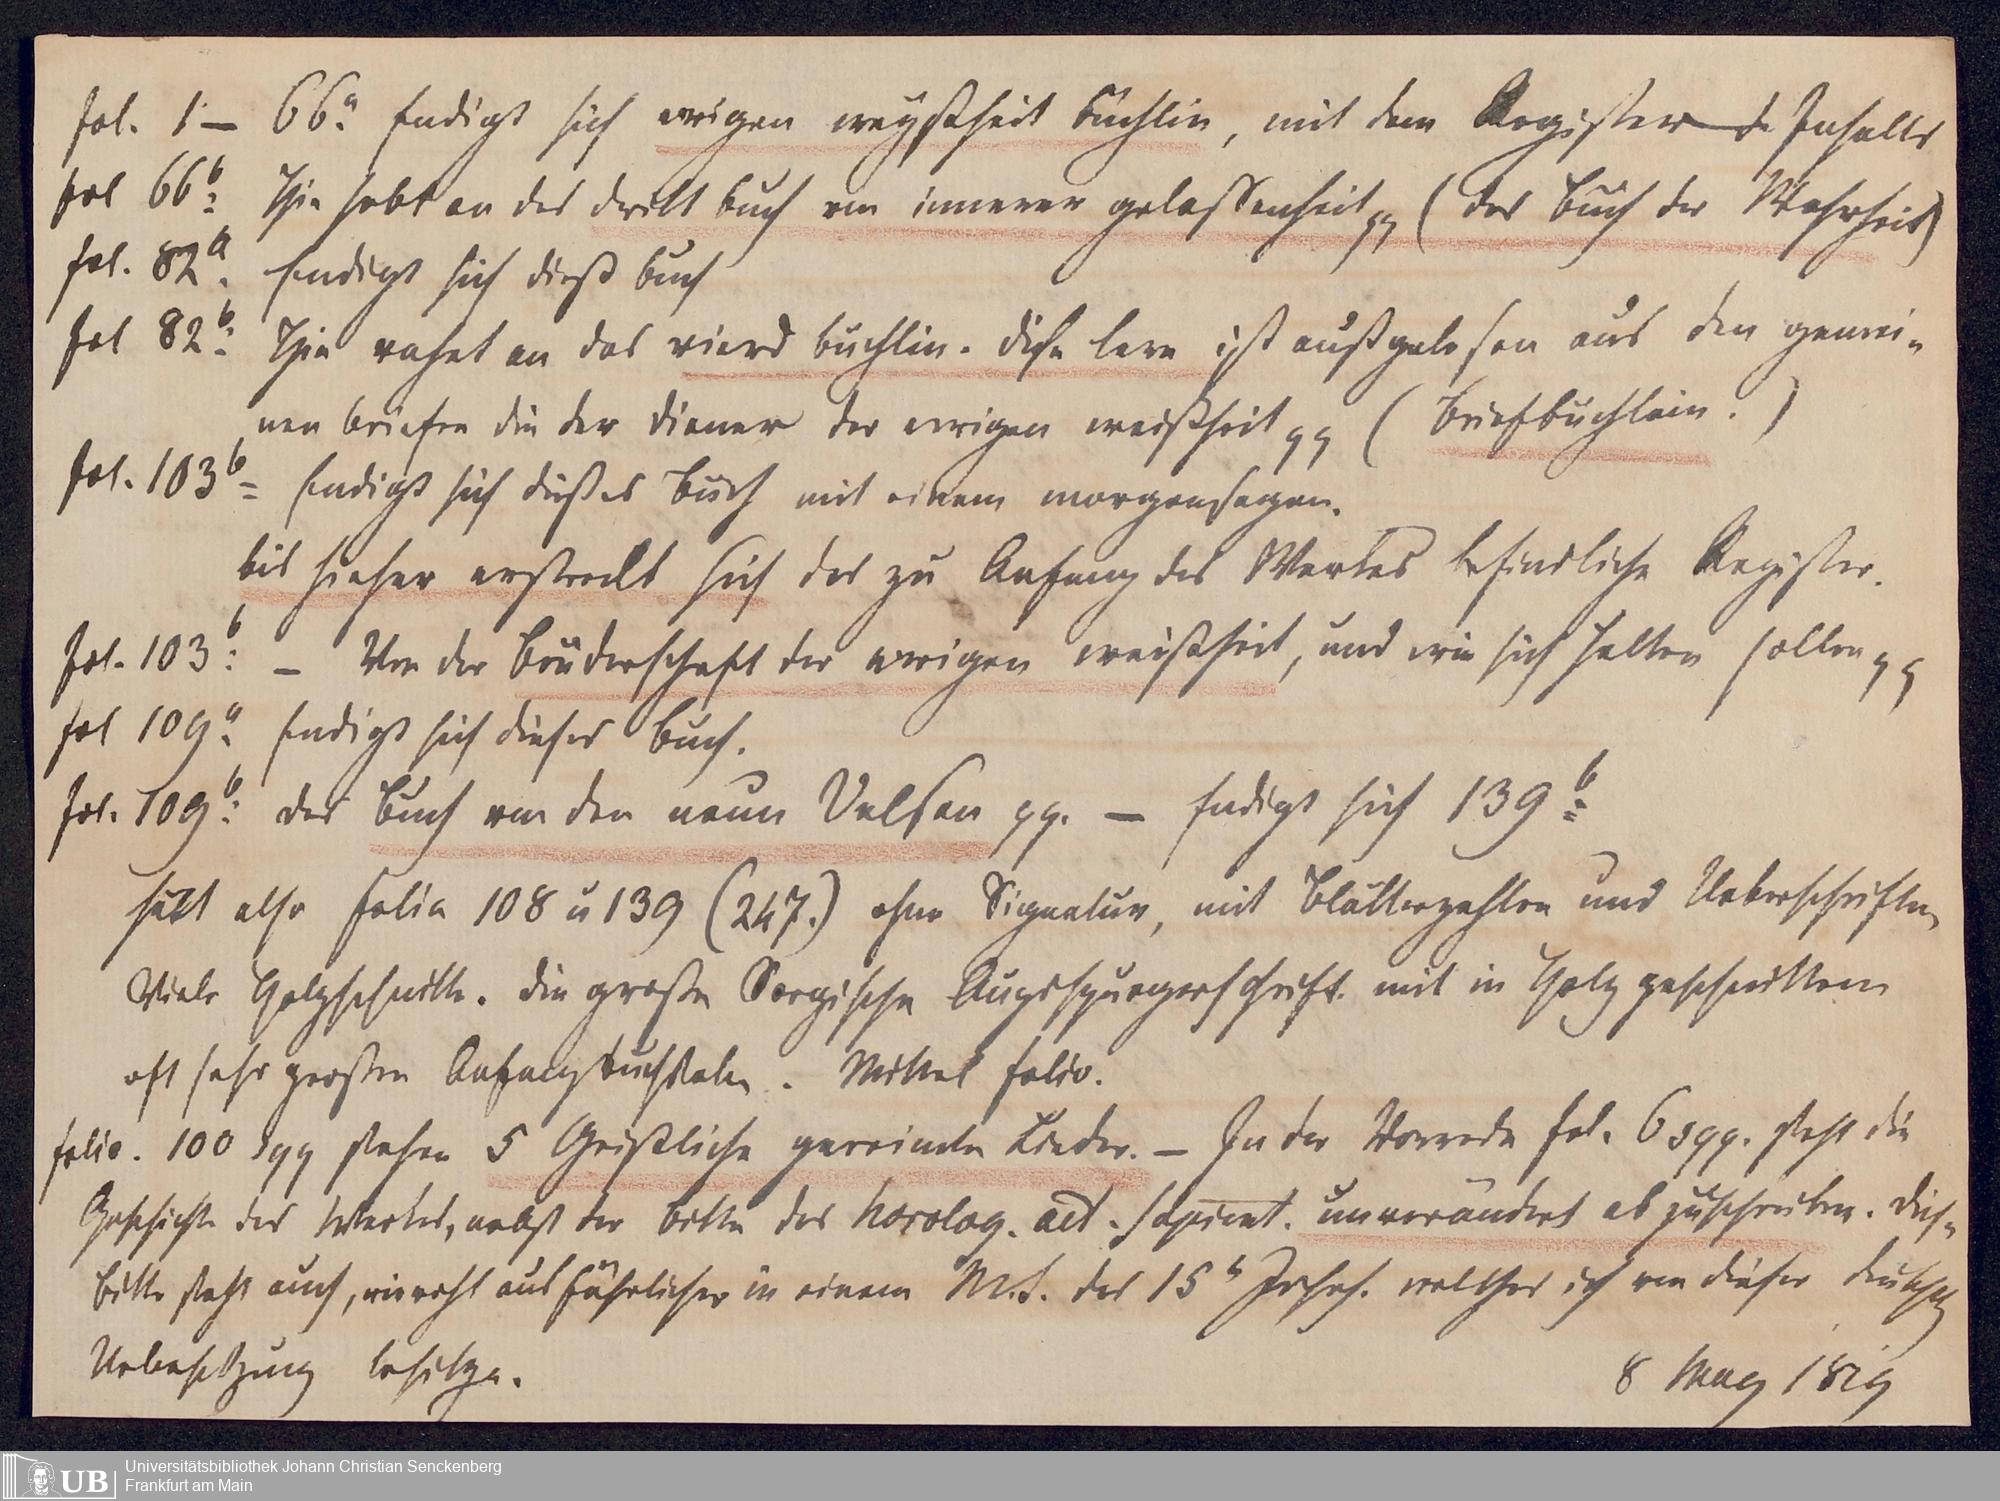 fol. 1 – 66a. Endigt sich ewigen weyßheit büchlin, mit dem Register d. Inhalts
fol 66b: Hie hebt an das dritt buch von innerer gelassenheit pp (das buch der Wahrheit)
fol. 82a. Endigt sich dieß buch
fol 82b: Hie vahet an das vierd buchlin. dise lere ist außgelesen aus den gemei-
nen briefen die der diener der ewigen weißheit pp (Briefbüchlein.)
fol. 103b= Endigt sich dießes buch mit einem morgensegen.
bis hieher erstreckt sich das zu Anfang des Werkes befindliche Register.
fol. 103b: – Von der Brüderschaft der ewigen weißheit, und wie sich halten sollen pp
fol 109a. Endigt sich dieses buch.
fol. 109b: das buch von den neun Velsen pp. – Endigt sich 139b=
hält also folia 108 u 139 (247.) ohne Signatur, mit Blätterzahlen und Ueberschriften
Viele Holzschnitte. die große Sorgische Augspurgerschrift. mit in Holz geschnittenen
oft sehr großen Anfangsbuchstaben. Mittel folio.
folio. 100 sqq stehen 5 Geistliche gereimte Lieder. – In der Vorrede fol. 6 sqq. steht die
Geschichte des Werkes, nebst der bitte das horolog. aet. sapient. unverändert abzuschreiben. Dise
bitte steht auch, wiewohl ausführlicher in einem M.S. des 15n Jrhrh. welches ich von dieser deutschen
Uebersetzung besitze.
8 May 1819
UB
Universitätsbibliothek Johann Christian Senckenberg
Frankfurt am Main